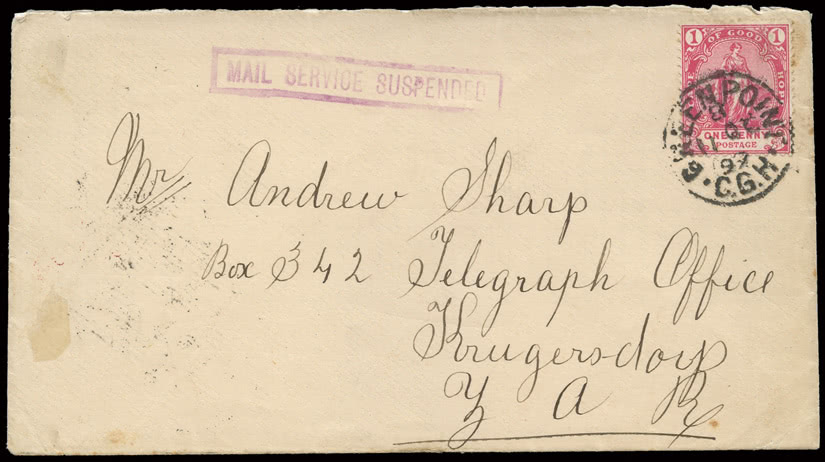 MAIL SERVICE SUSPENDED
1 OF GOOD 1
HOPE
ONE PENNY
POSTAGE
GREEN POINT
C.G.H.
Mr Andrew Sharp
Box 342 Telegraph Office
Krugersdorp
Z A R